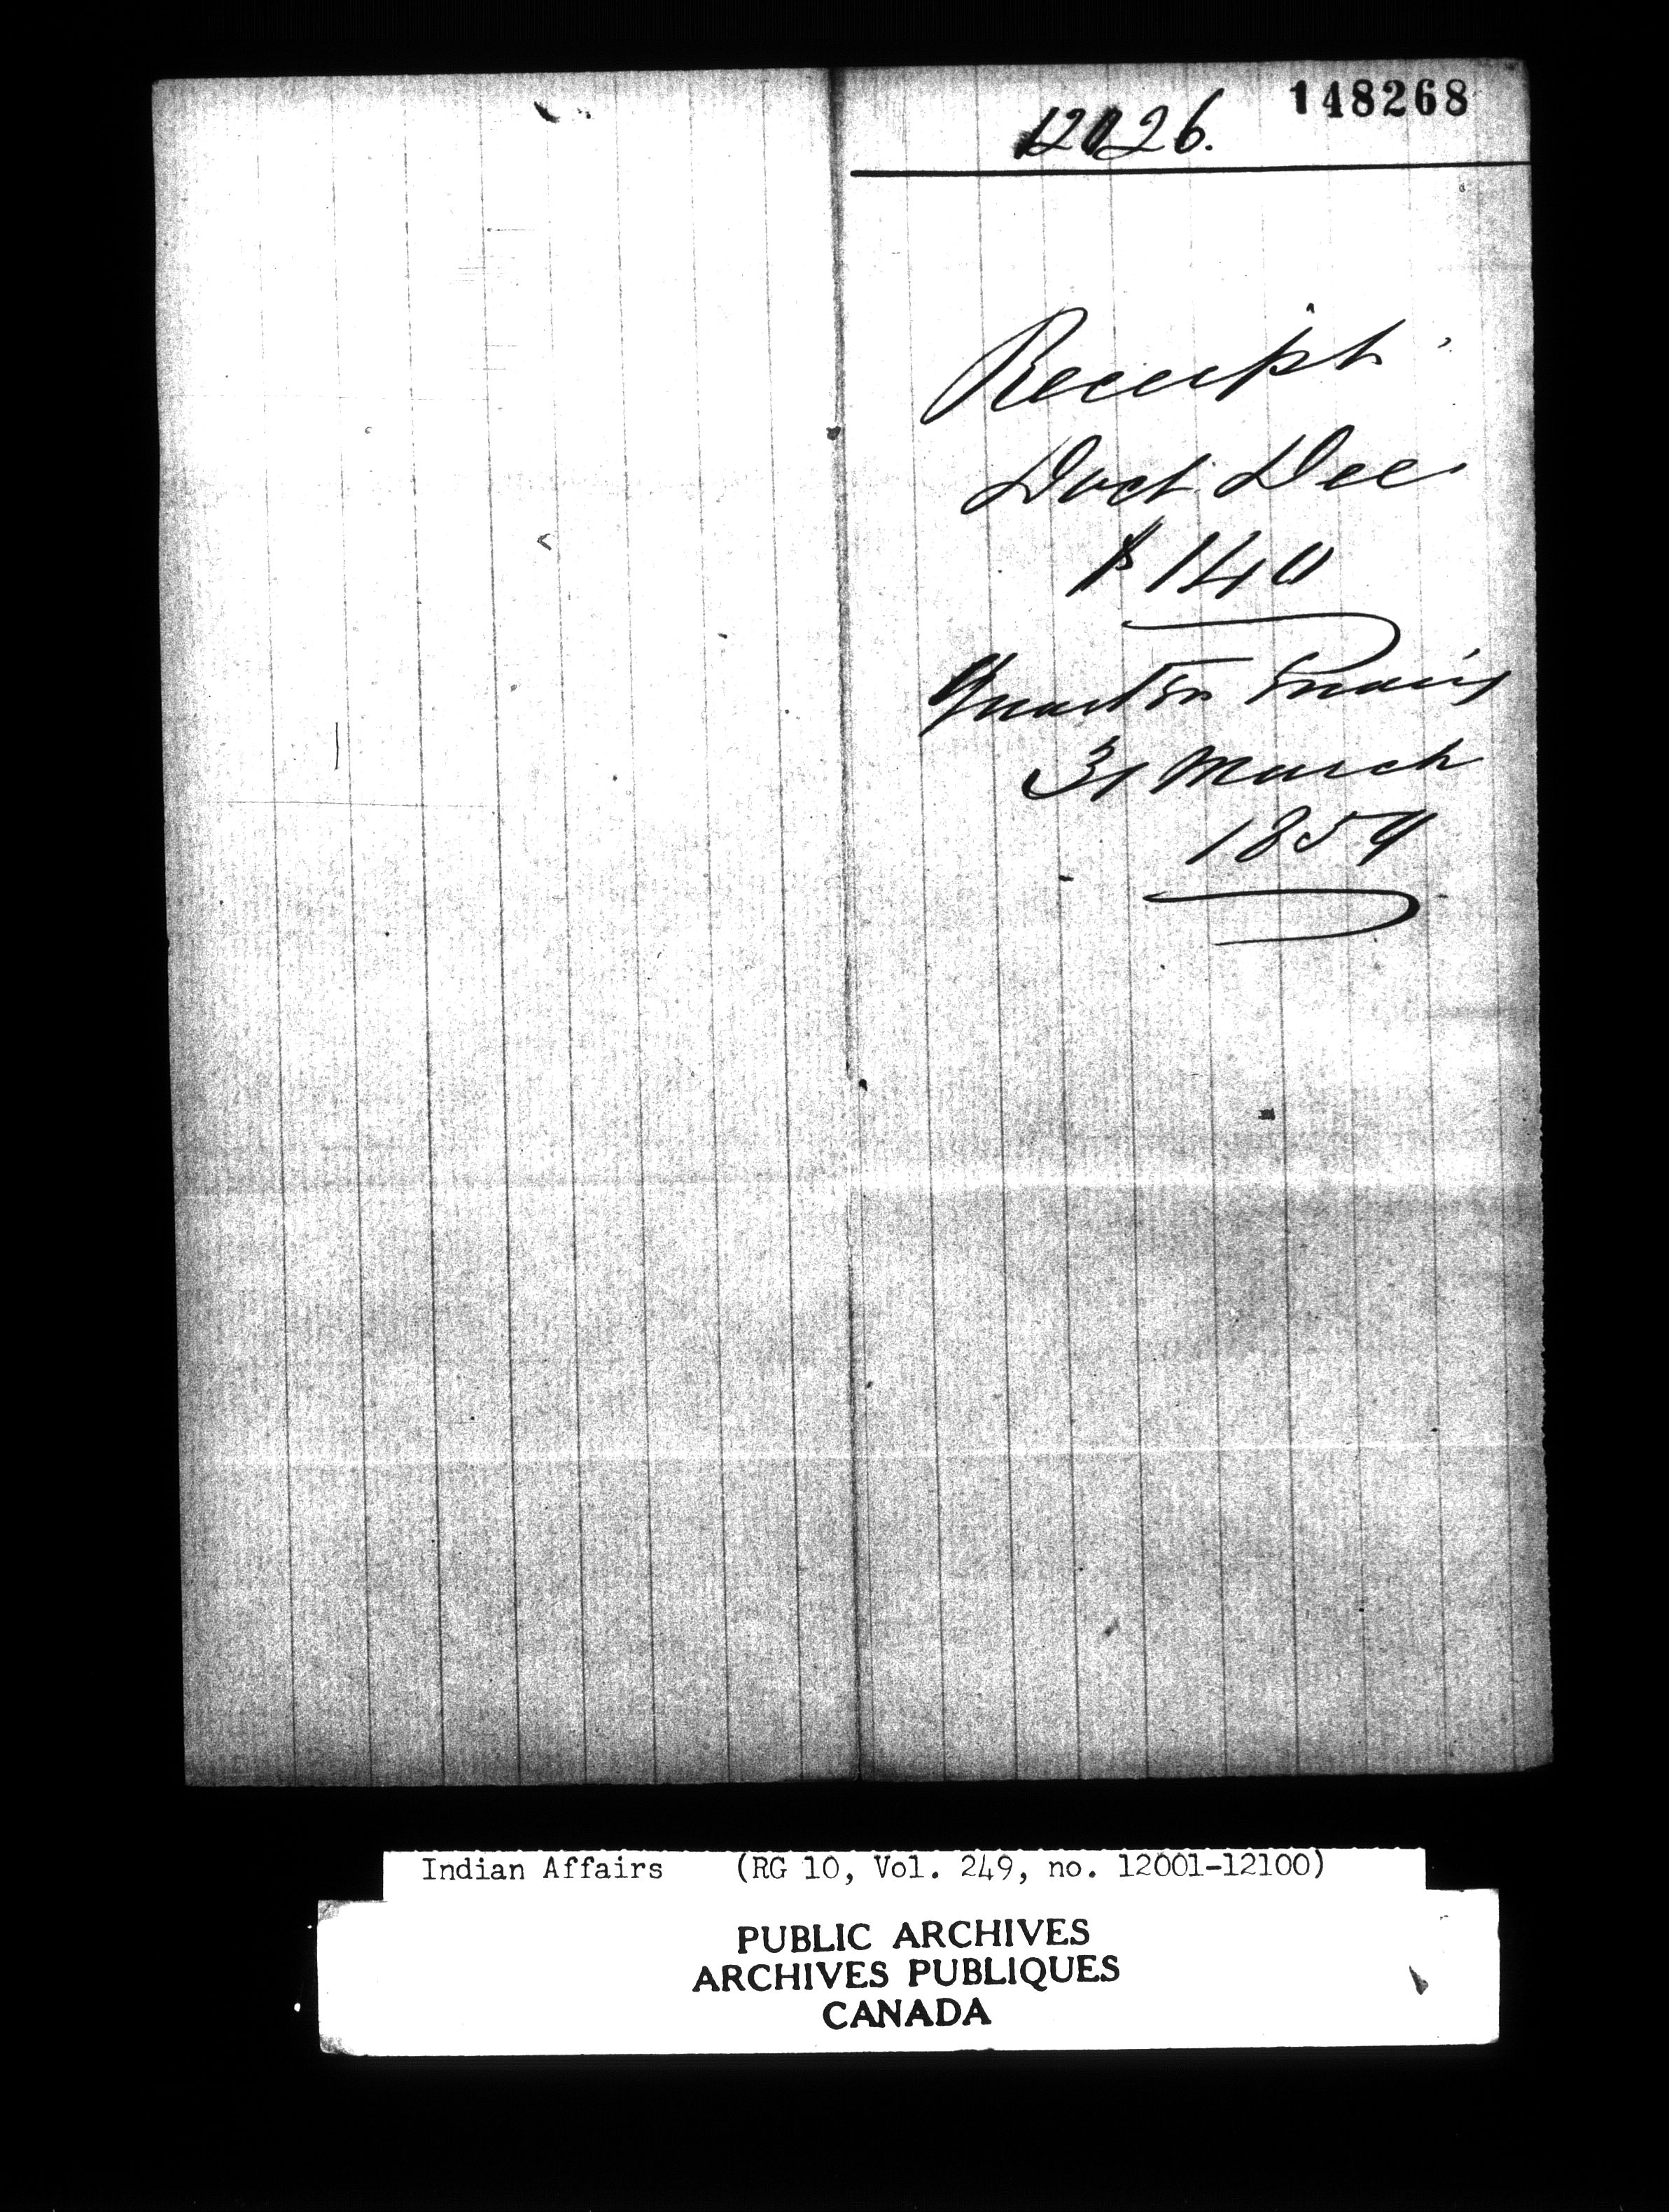 148268
12026.
Receipt
Doct. Dee
$140
Quarter Ending
31 March
1859
Indian Affairs (RG 10, Vol. 249, no. 12001-12100)
PUBLIC ARCHIVES
ARCHIVES PUBLIQUES
CANADA